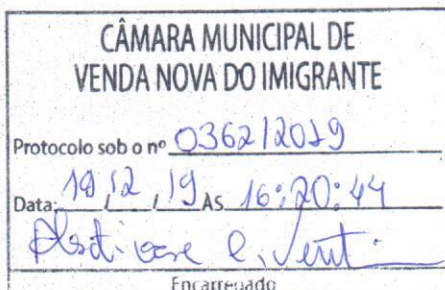 CÂMARA MUNICIPAL DE
VENDA NOVA DO IMIGRANTE
Protocolo sob o nº 0362/2019
Data: 19/12/19 ÀS 16:20:44
Encarregado